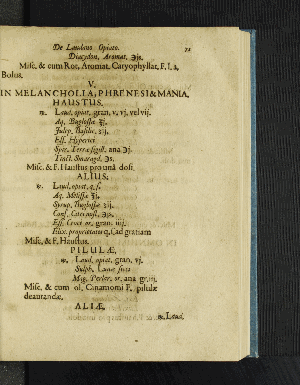 De Laudano Opiato. 71
Diacydon. Aromat. ℈js.
Misc. & cum Rot. Aromat. Caryophyllat. F. l. a.
Bolus.
V.
IN MELANCHOLIA, PHRENESI & MANIA,
HAUSTUS.
℞. Laud. opiat. gran. v, vj, vel vij.
Aq. Buglossæ ℥j.
Julep. Basilic. ʒij.
Ess. Hyperici
Spec. Terræ sigill. ana ℈j.
Tinct. Smaragd. ℈s.
Misc. & F. Haustus pro unâ dosi.
ALIUS.
℞. Laud. opiat. q. s.
Aq. Melissæ ℥j.
Syrup. Buglossæ ʒij.
Ess. Croci or. gran. iiij.
Elix. proprietatis q. s. ad gratiam
Misc. & F. Haustus.
PILULÆ.
℞. Laud. opiat. gran. vj.
Sulph. Lunæ fixi
Mag. Perlar. or. ana gr. iij.
Misc. & cum ol. Cinamomi F. pilulæ
deaurandæ.
ALIÆ.
℞. Laud.